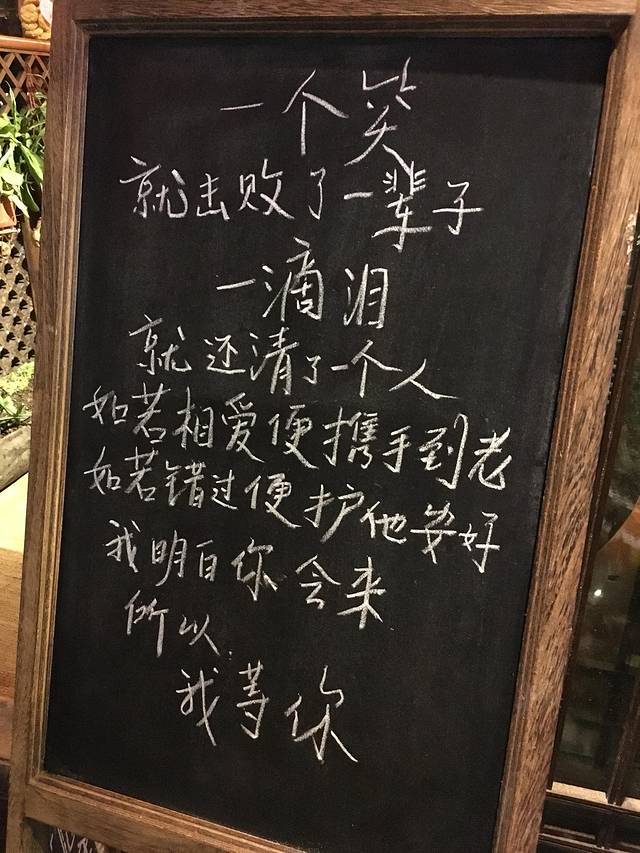 一个笑
就击败了一辈子
一滴泪
就还清了一个人
如若相爱便携手到老
如若错过便护他安好
我明白你会来
所以
我等你